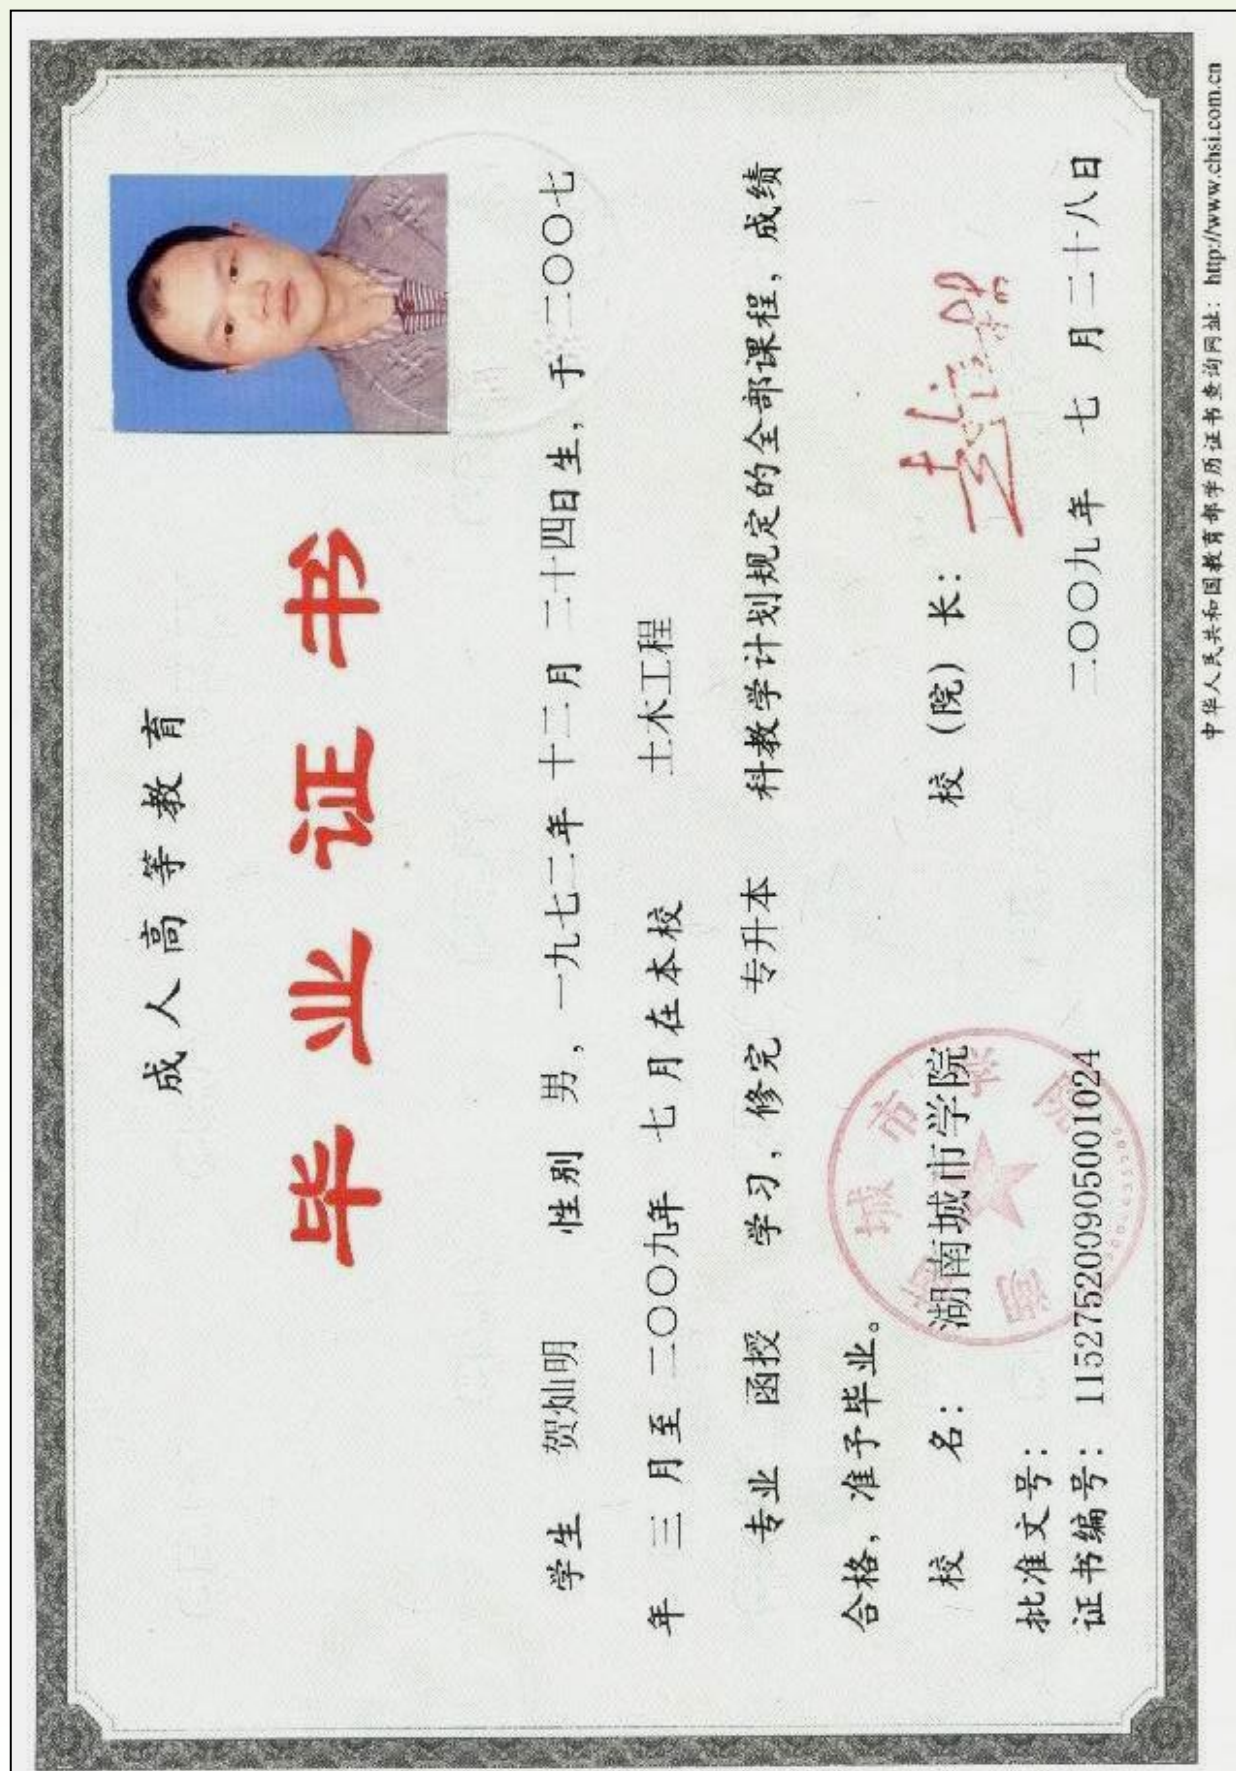 成人高等教育
毕业证书
学生 贺灿明 性别 男，一九七二年 十二月 二十四日生，于二〇〇七
年 三 月至 二〇〇九年 七 月在本校 土木工程
专业 函授 学习，修完 专升本 科教学计划规定的全部课程，成绩
合格，准予毕业。
校 名：湖南城市学院 校（院）长：
批准文号：
证书编号：115275200905001024 二〇〇九年 七 月二十八日
湖南城市学院
中华人民共和国教育部学历证书查询网址：http://www.chsi.com.cn